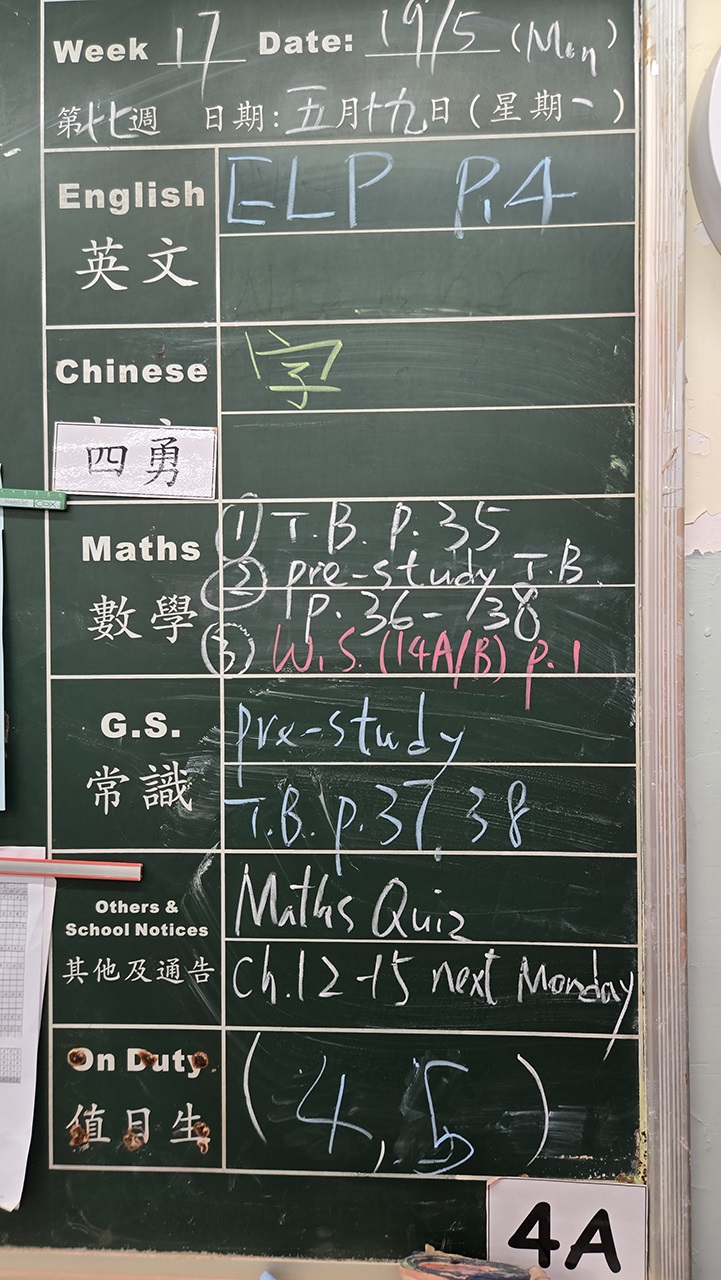 Week 17 Date: 19/5 (Mon)
第十七週 日期:五月十九日(星期一)
English ELP P.4
英文
Chinese 字
四勇
Maths ① T.B. P. 35
② pre-study T.B.
數學 p. 36-38
③ W.S. (14A/B) p.1
G.S. pre-study
常識 T.B. p.37, 38
Others &
School Notices Maths Quiz
其他及通告 Ch.12-15 next Monday
On Duty (4,5)
值日生
4A